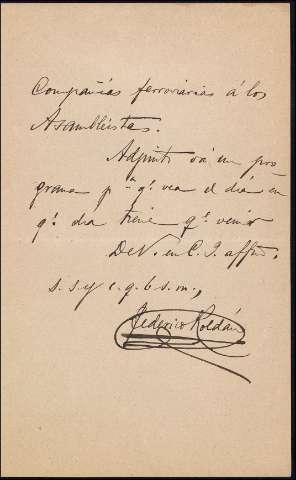 Compañías ferroviarias á los
Asambleistas.
Adjunto vá un pro
grama pª qe. vea el día en
qe. dia tiene qe. venir
De V. en C. J. affmo.
s. s. y c. q. b. s. m.,
Federico Roldán